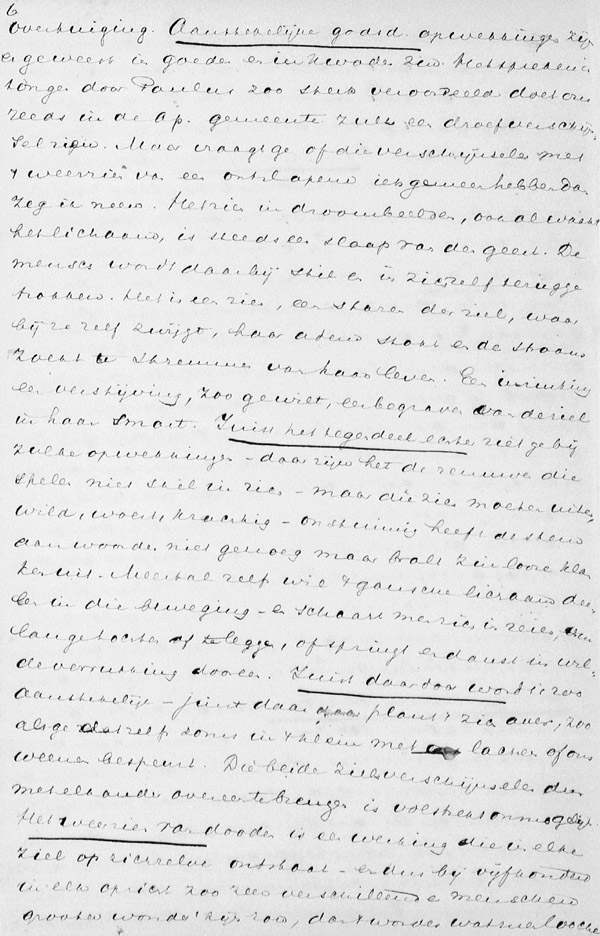 6
overtuiging. Aanstekelijke godsd. opwekkingen zijn
er geweest in goeden en in kwaden zin. Het spreken in
tongen door Paulus zoo sterk veroordeeld doet ons
reeds in de Ap. gemeente zulk een droef verschijn-
sel zien. Maar vraagt ge of die verschijnselen met
't weerzien van een ontslapene iets gemeen hebben dan
zeg ik neen. Het zien in droombeelden, ook al waakt
het lichaam, is steeds een slaap van den geest. De
mensch wordt daarbij stil en in zichzelf terugge
trokken. Het is een zien, een staren der ziel, waar
bij ze zelf zwijgt, haar adem stokt en de stroom
van haar leven. Een
een verstijving, zoo ge wilt, een begraven van de ziel
in haar smart. Juist het tegendeel echter ziet ge bij
zulke opwekkingen – daar zijn het de zenuwen die
spelen niet stil in zien – maar die zich moeten uiten,
wild, woest, krachtig – onstuimig heeft de stem
aan woorden niet genoeg maar bralt zinlooze klan
ken uit. Meestal zelfs wil 't gansche lichaam dee-
len in die beweging – en schaart men zich in reien,
of springt en danst in wil-
de verrukking dooreen. Juist daardoor wordt 't zoo
aanstekelijk – juist daardoor plant 't zich over, zoo
als ge dat zelf soms in 't klein met lachen of ons
weenen bespeurt. Die beide zielsverschijnselen dus
met elkander overeen te brengen is volstrekt onmogelijk.
Het weerzien van dooden is een werking die in elke
ziel op zichzelve ontstaat – en dus bij vijfhonderd
in elk opzicht zoo zeer verschillende menschen
grooter wonder zijn zou, dan 't wonder waarmee